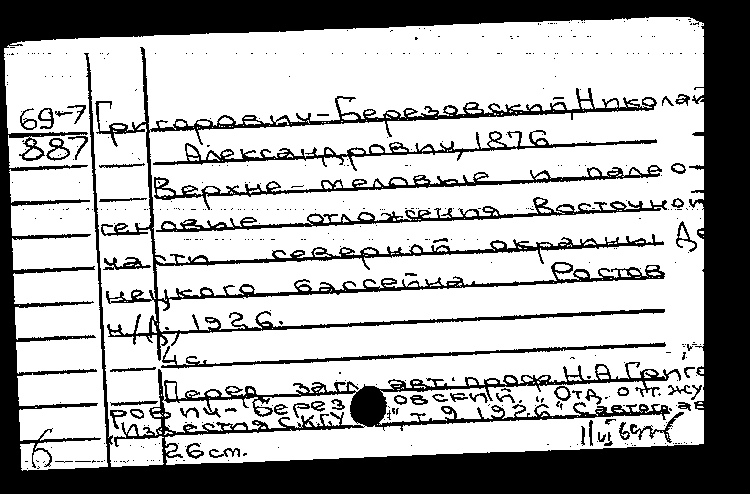 69-7 Григорович-Березовский, Николай
887 Александрович, 1876
Верхне-меловые и палео-
геновые отложения восточной
части северной окраины До
нецкого бассейна. Ростов
н/Д., 1926.
4 с.
Перед загл. авт.: проф. Н.А. Григо
рович-Березовский. "Отд. отт. жу
"Известия СКГУ", т. 9 1926"
26 cm.
6